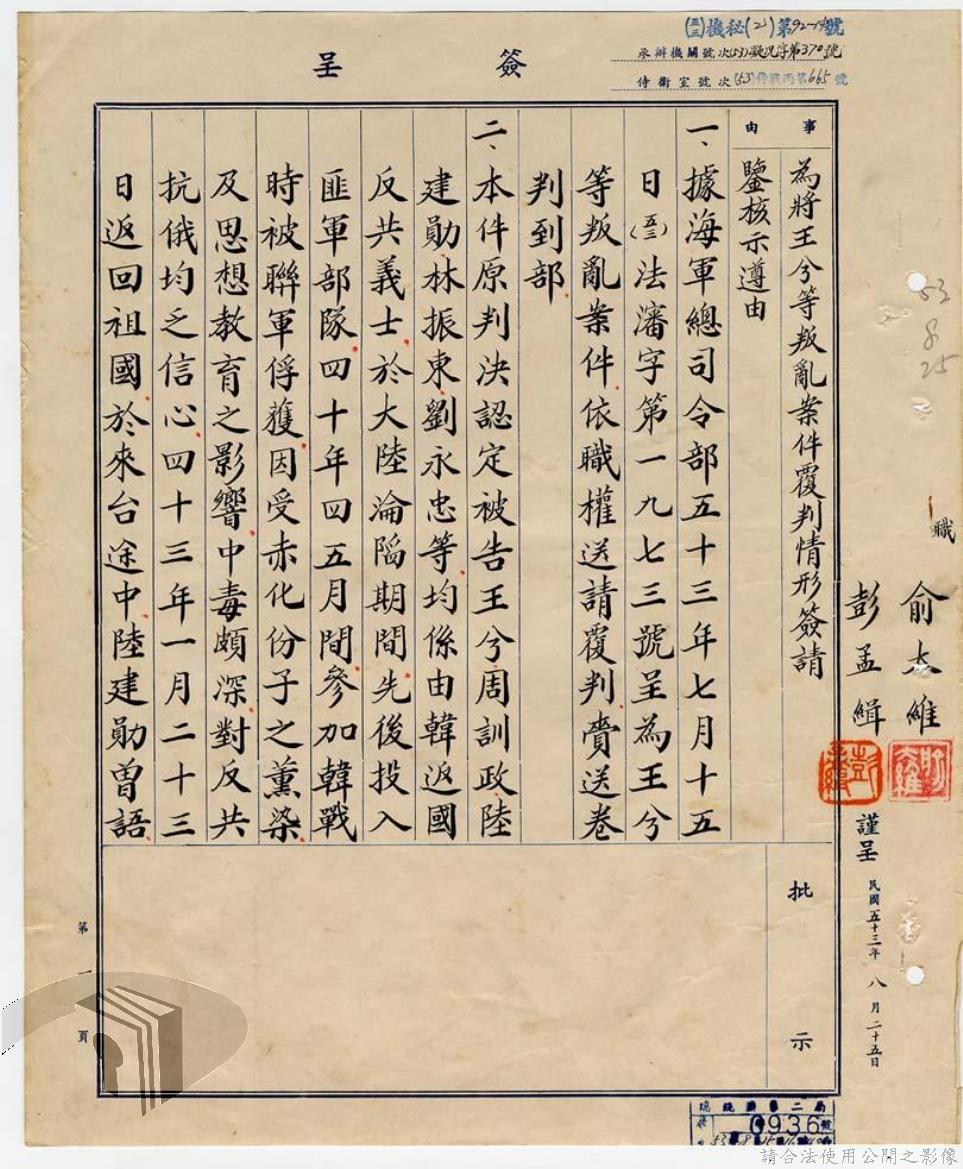 (五三)機秘(乙)第92-14號
承辦機關號次(53)凝況字第370號
侍衛室號次(53)侍戰丙第665號
簽呈
職
俞大維
彭孟緝
謹呈
民國五十三年八月二十五日
53
8
25
事由
為將王兮等叛亂案件覆判情形簽請
鑒核示遵由
一、據海軍總司令部五十三年七月十五
日(五三)法瀋字第一九七三號呈為王兮
等叛亂案件依職權送請覆判賷送卷
判到部
二、本件原判決認定被告王兮周訓政陸
建勛林振東劉永忠等均係由韓返國
反共義士於大陸淪陷期間先後投入
匪軍部隊四十年四五月間參加韓戰
時被聯軍俘獲因受赤化份子之薰染
及思想教育之影響中毒頗深對反共
抗俄均乏信心四十三年一月二十三
日返回祖國於來台途中陸建勛曾語
批示
第一頁
總統府第二局
0936
請合法使用公開之影像